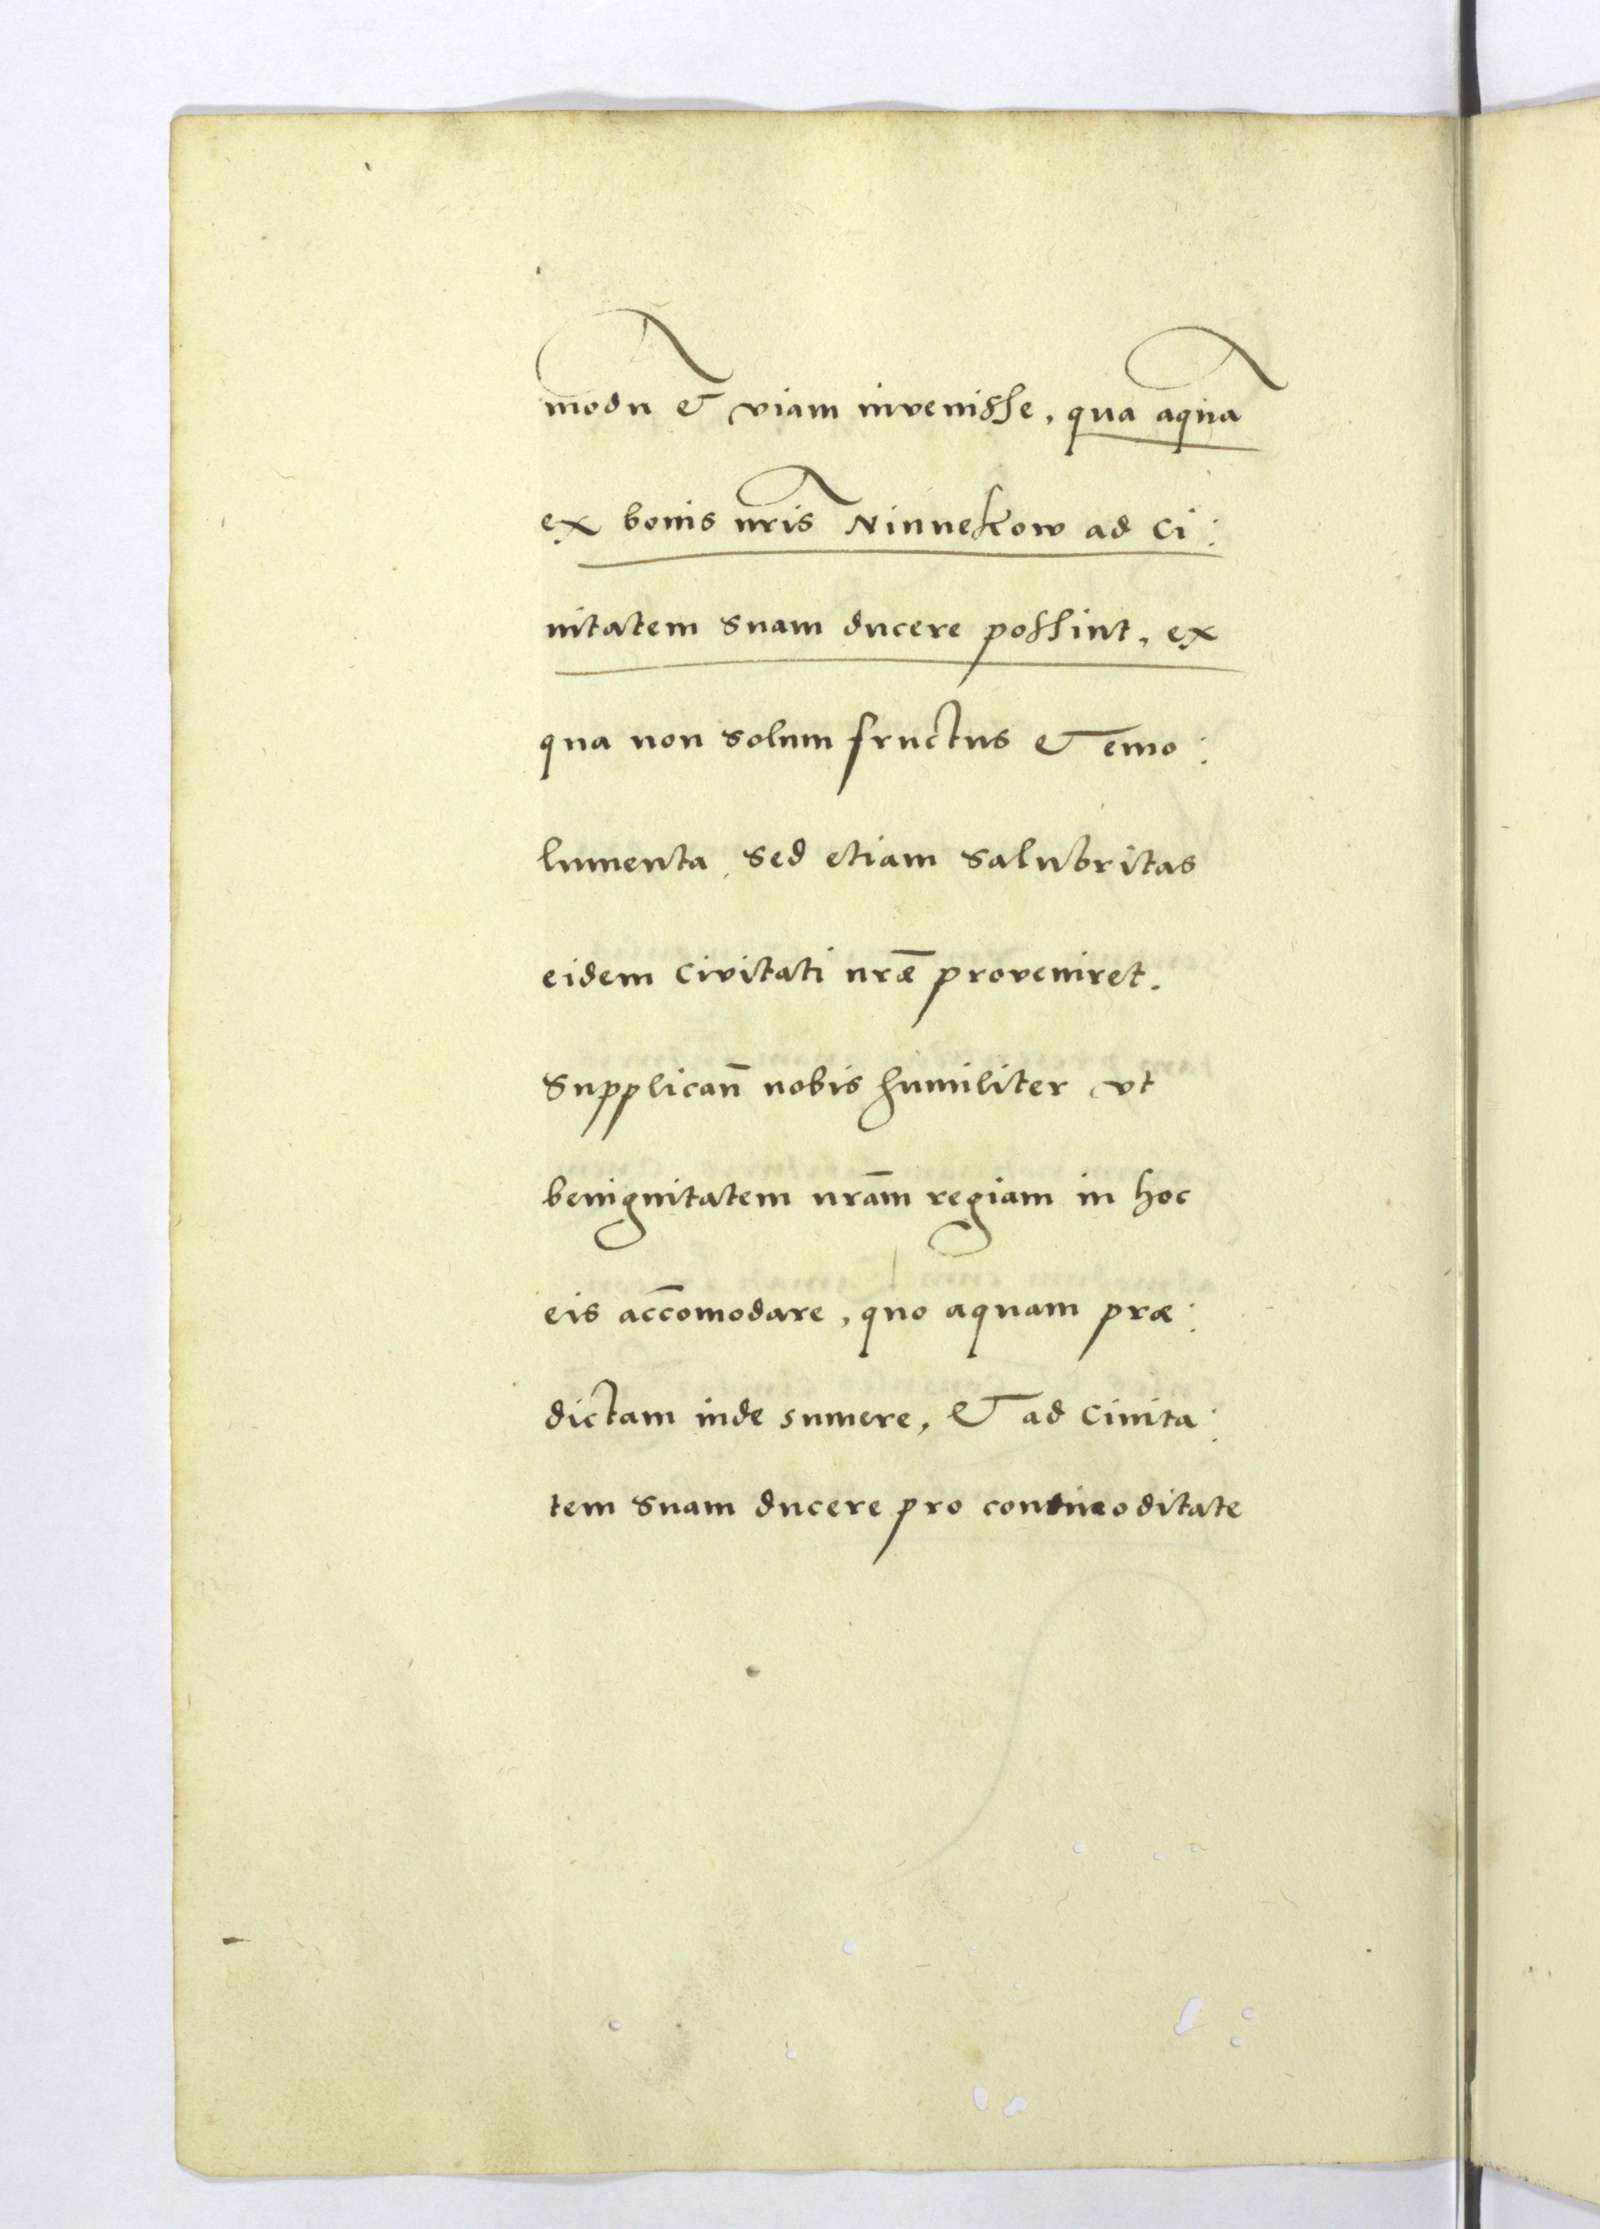 modū & viam invenisse, qua aquā
ex bonis nr̃is Ninnekow ad Ci:
uitatem suam ducere possint, ex
qua non solum fructus & emo:
lumenta, sed etiam salubritas
eidem Civitati nr̃æ proveniret.
Supplicañ nobis humiliter vt
benignitatem nr̃am regiam in hoc
eis accōmodare, quo aquam præ:
dictam inde sumere, & ad Ciuita:
tem suam ducere pro commoditate